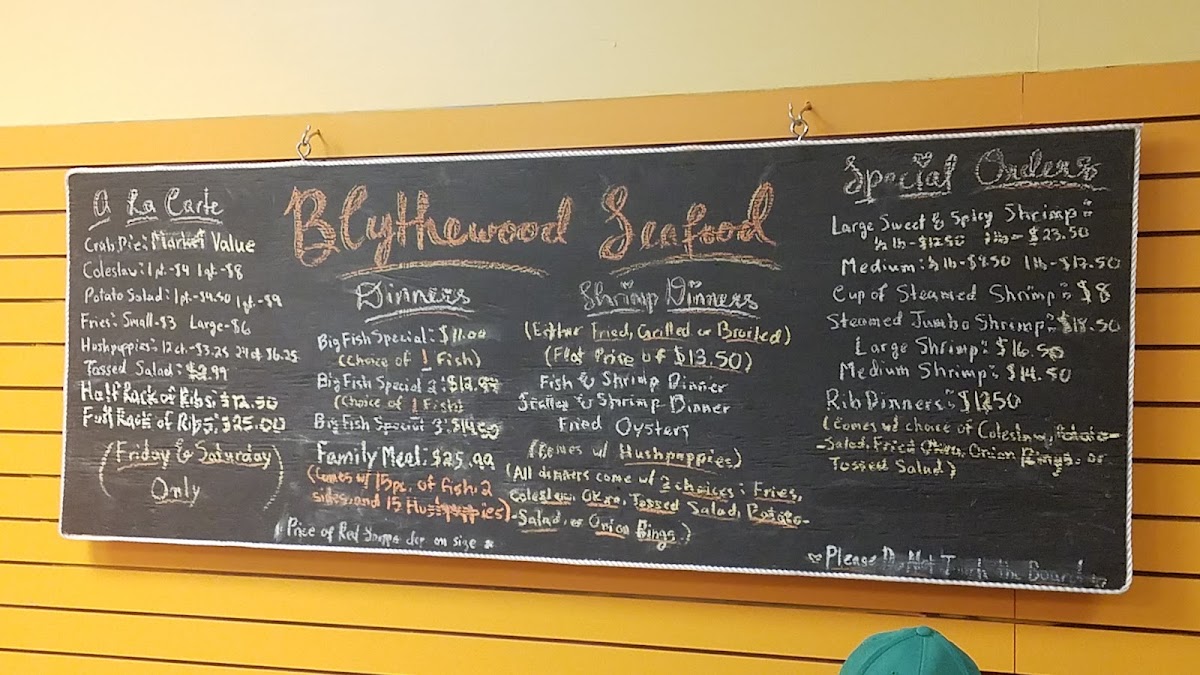 A La Carte
Crab Pie: Market Value
Coleslaw: 1pt.-$4 1qt.-$8
Potato Salad: 1pt.-$4.50 1qt.-$9
Fries: Small-$3 Large-$6
Hushpuppies: 12ct.-$3.25 24ct $6.25
Tossed Salad: $2.99
Half Rack of Ribs: $12.50
Full Rack of Ribs: $25.00
(Friday & Saturday)
Only
Blythewood Seafood
Dinners
Big Fish Special: $11.00
(Choice of 1 Fish)
Big Fish Special 2: $12.99
(Choice of 1 Fish)
Big Fish Special 3: $14.50
Family Meal: $25.99
(Comes w/ 15pc. of fish, 2
sides, and 15 Hushpuppies)
* Price of Red Snapper dep on size *
Shrimp Dinners
(Either Fried, Grilled or Broiled)
(Flat Price of $13.50)
Fish & Shrimp Dinner
Scallop & Shrimp Dinner
Fried Oysters
(Comes w/ Hushpuppies)
(All dinners come w/ 2 choices: Fries,
Coleslaw, Okra, Tossed Salad, Potato-
-Salad, or Onion Rings.)
Special Orders
Large Sweet & Spicy Shrimp:
½ lb-$12.50 1lb-$23.50
Medium: ½ lb-$9.50 1lb-$17.50
Cup of Steamed Shrimp: $8
Steamed Jumbo Shrimp: $18.50
Large Shrimp: $16.50
Medium Shrimp: $14.50
Rib Dinners: $12.50
(Comes w/ choice of Coleslaw, Potato-
-Salad, Fried Okra, Onion Rings, or
Tossed Salad)
Please Do Not Touch the Board